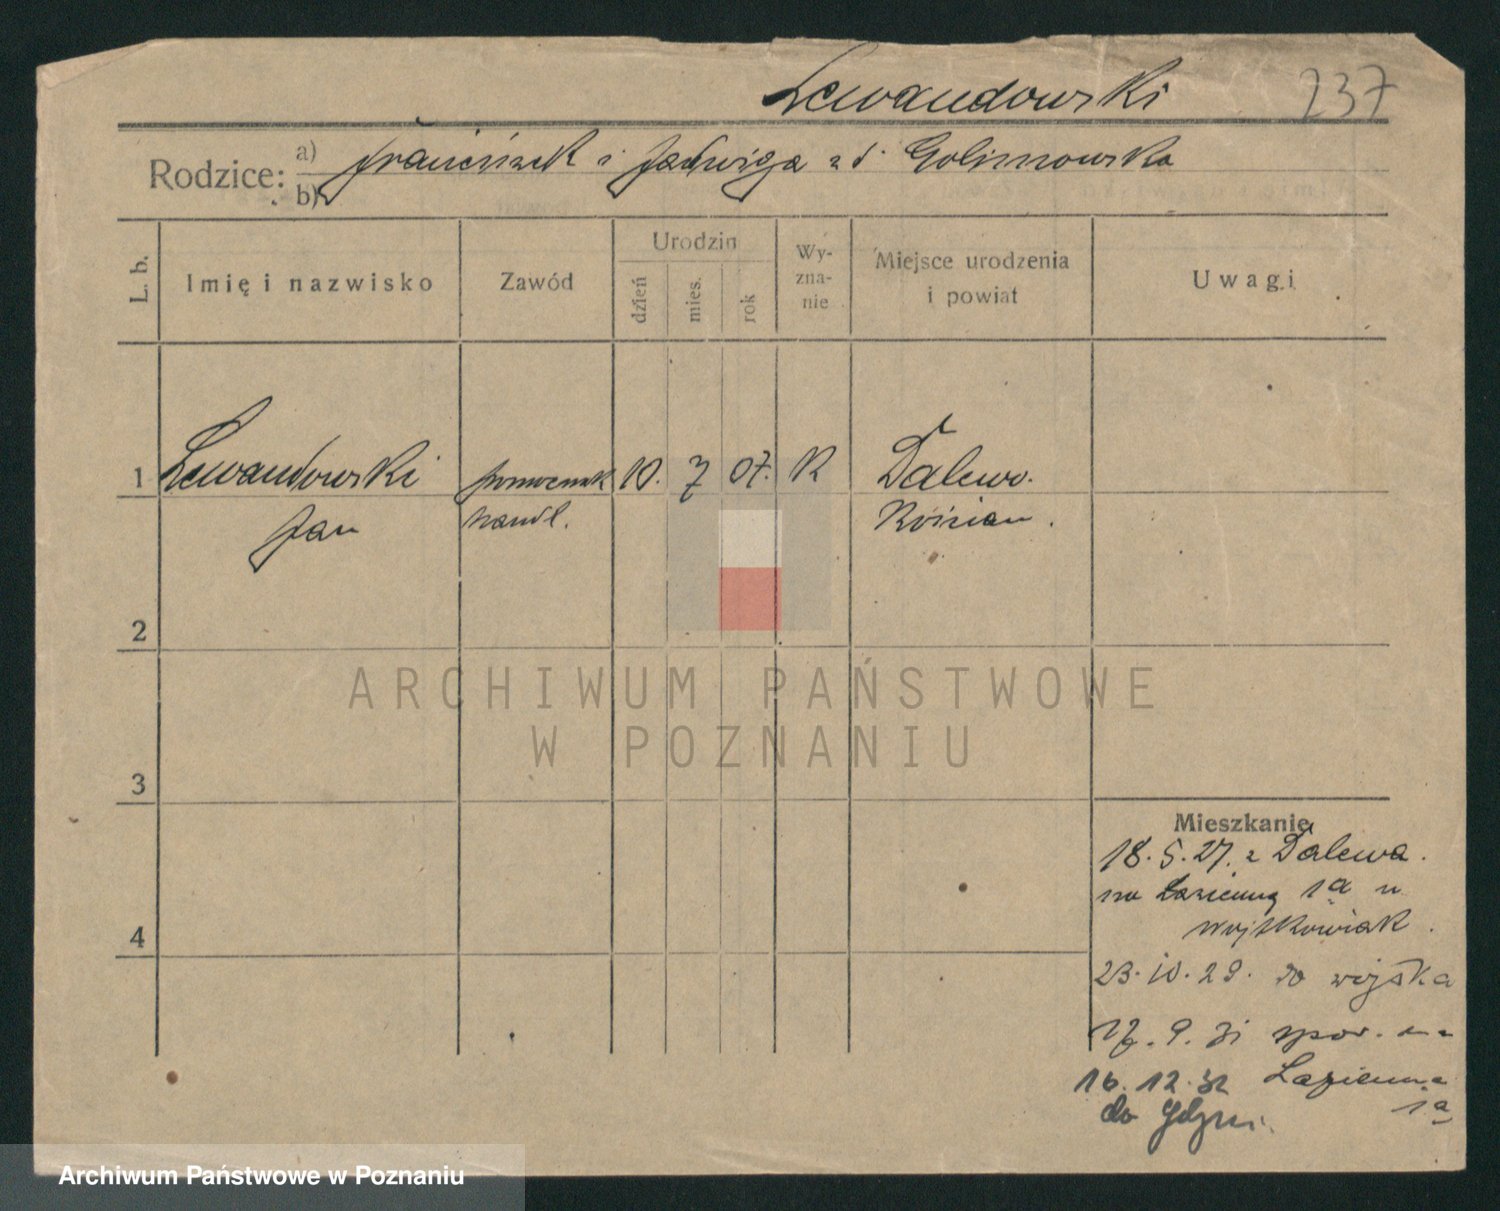 Lewandowski 237
Rodzice: a) Franciszek i Jadwiga z d. Golimowska
b)
L. b.
Imię i nazwisko
Zawód
Urodzin
dzień
mies.
rok
Wy-
zna-
nie
Miejsce urodzenia
i powiat
Uwagi
1 Lewandowski pomocnik 10. 7 07. K Dalewo.
Jan handl. Kościan.
2
ARCHIWUM PAŃSTWOWE
W POZNANIU
3
Mieszkanie
18. 5. 27. z Dalewa.
na Łazienną 1a u
Wojtkowiak.
4
23. 10. 29. do wojska
17. 9. 31 spow. na
16. 12. 32 Łazienna
do Gdyni. 1a
Archiwum Państwowe w Poznaniu